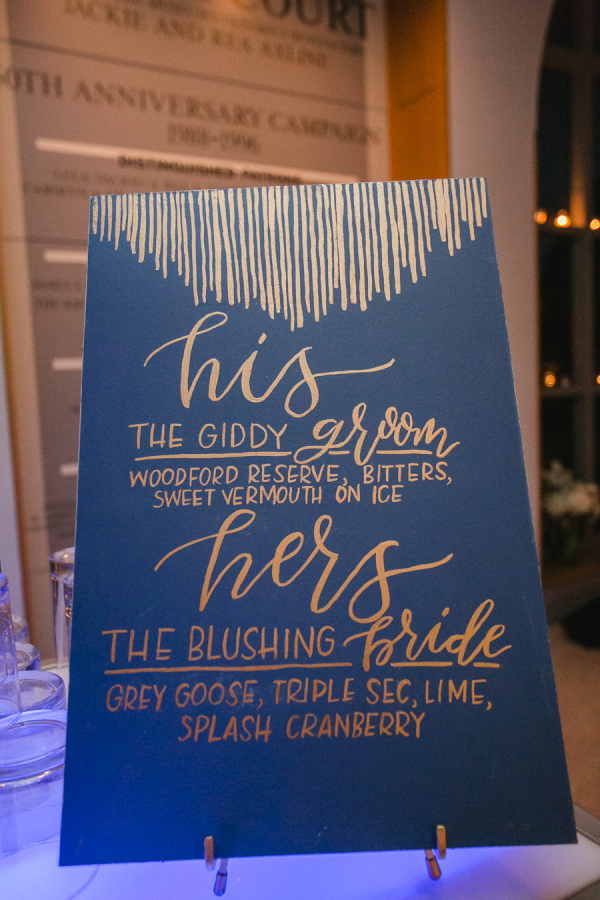 COURT
JACKIE AND REA AXLINE
50TH ANNIVERSARY CAMPAIGN
1988-1996
his
THE GIDDY groom
WOODFORD RESERVE, BITTERS,
SWEET VERMOUTH ON ICE
hers
THE BLUSHING bride
GREY GOOSE, TRIPLE SEC, LIME,
SPLASH CRANBERRY